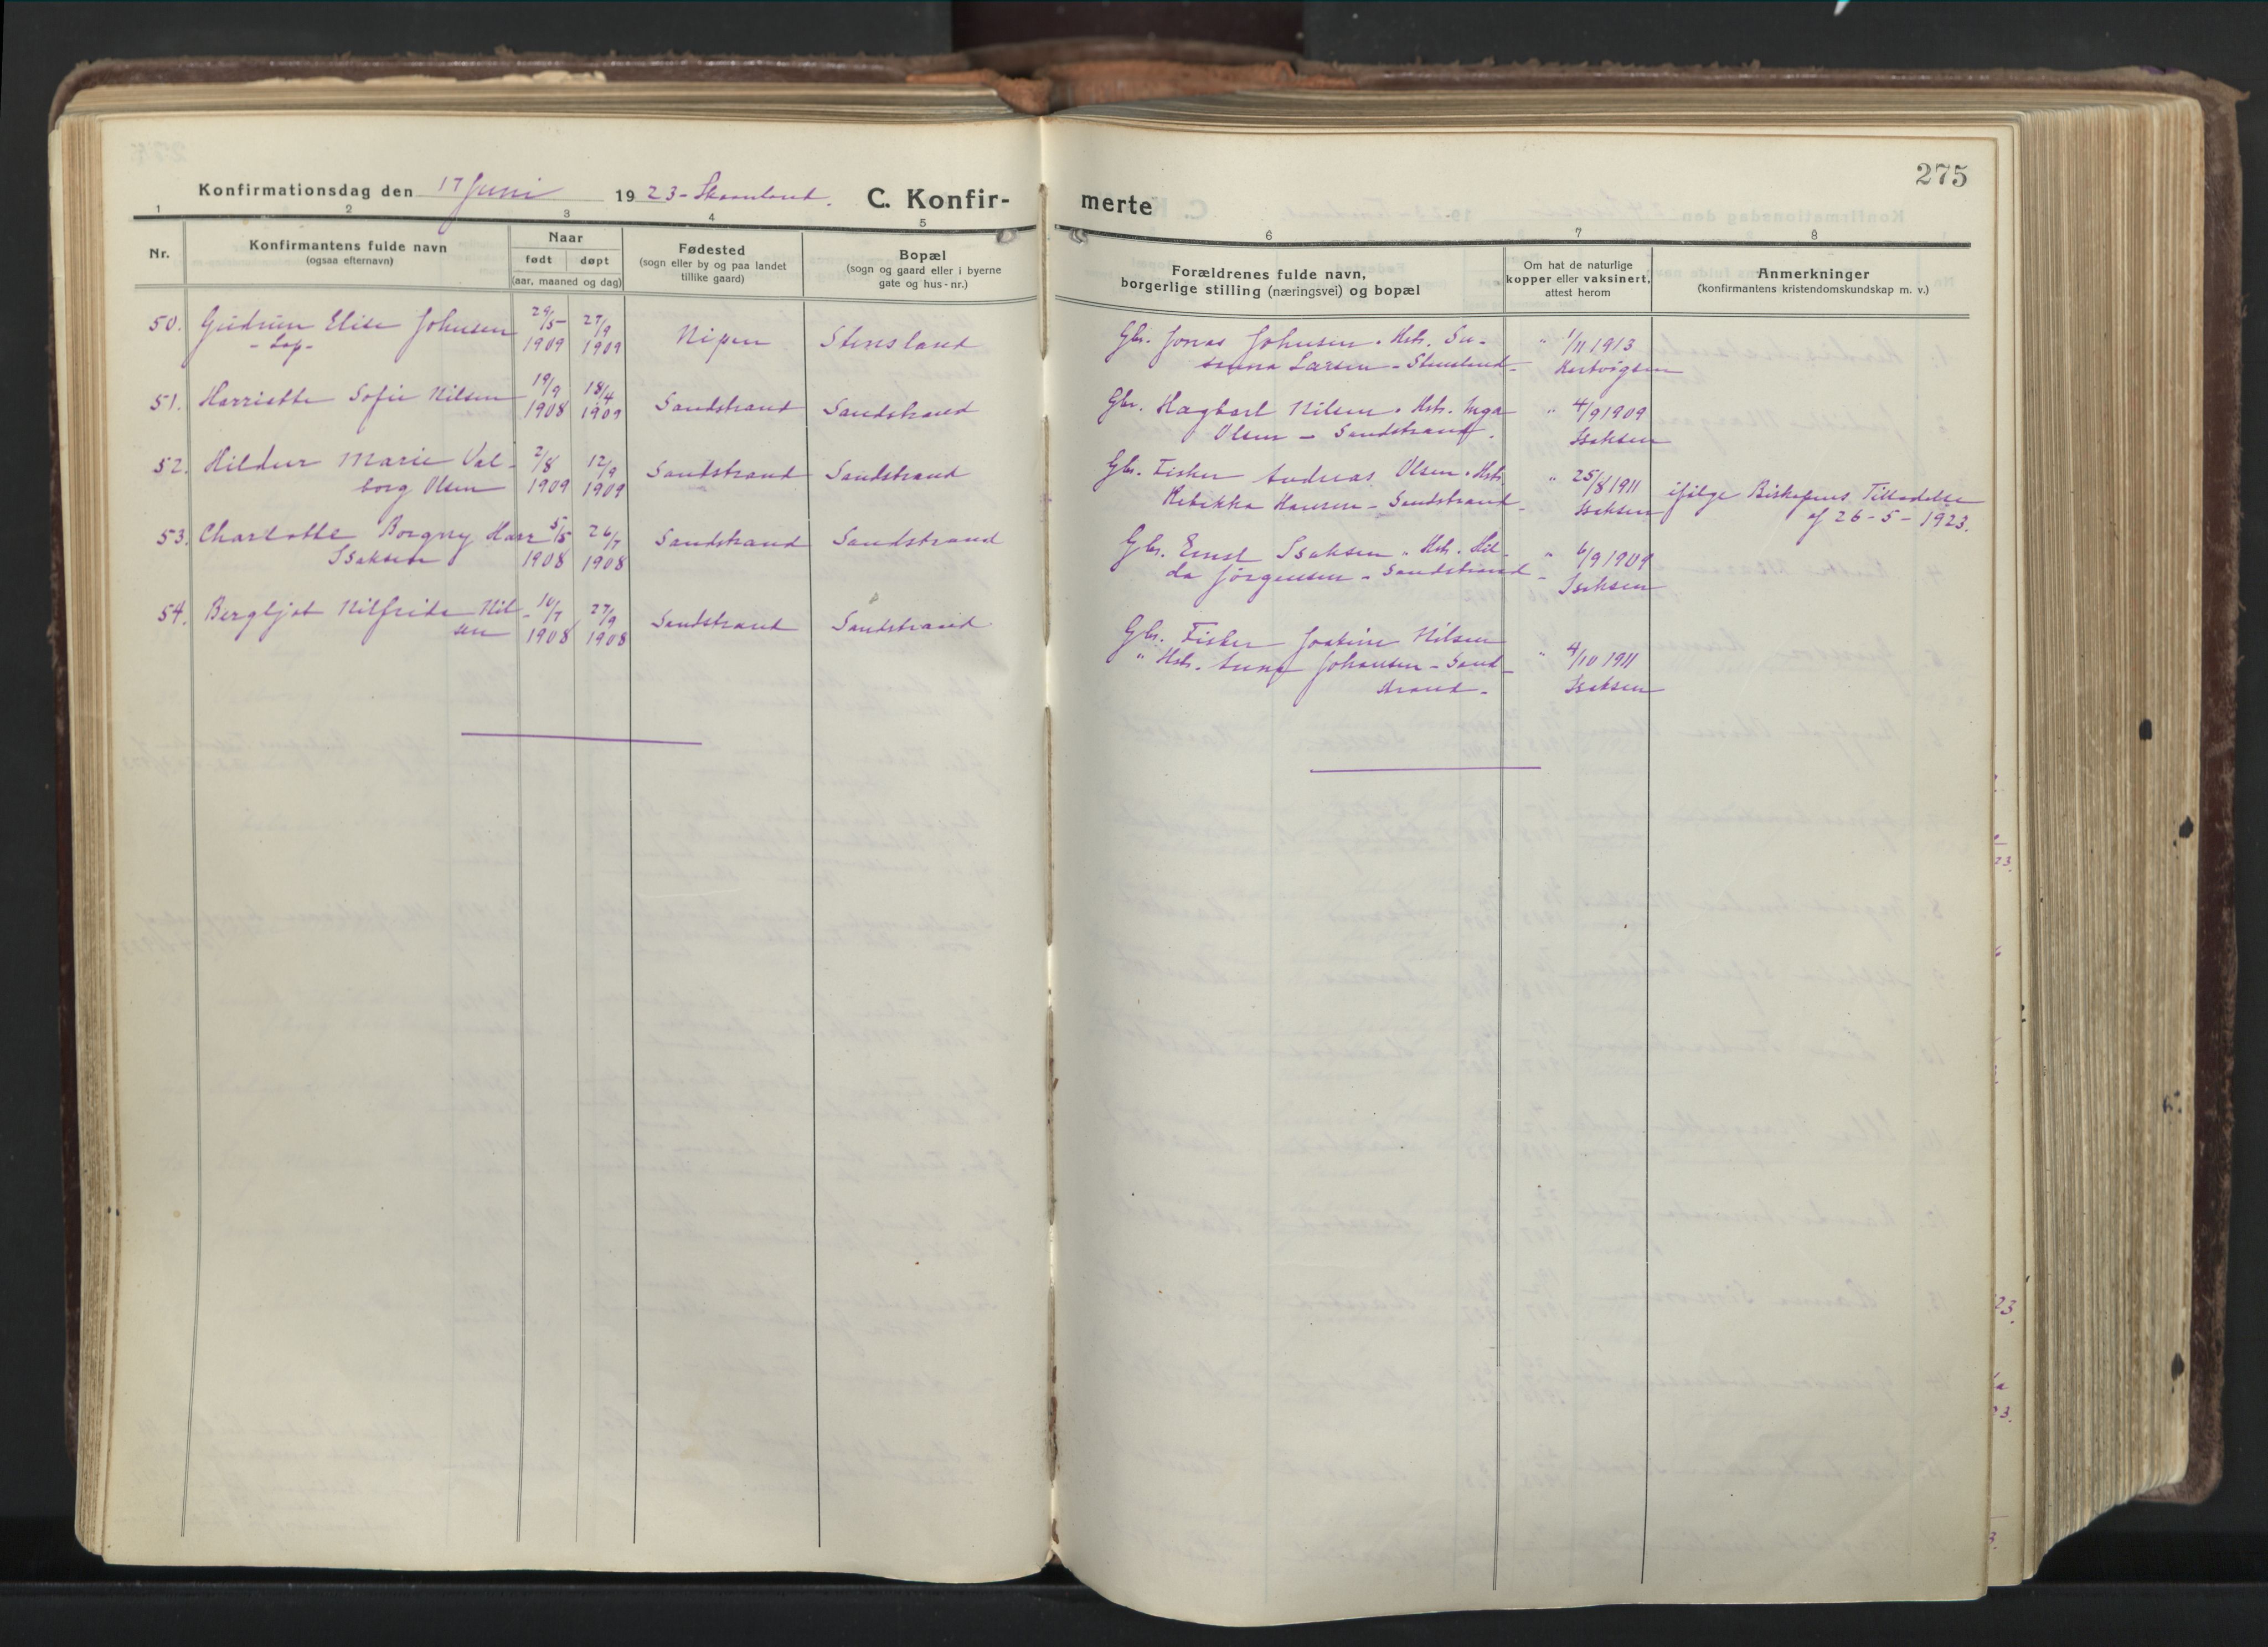 275
Konfirmationsdag den 17 Juni 1923 - Skaanland. C. Konfir-
merte
1 2 3 4 5
6 7 8
Nr.
Konfirmantens fulde navn
(ogsaa efternavn)
Naar
født døpt
(aar, maaned og dag)
Fødested
(sogn eller by og paa landet
tillike gaard)
Bopæl
(sogn og gaard eller i byerne
gate og hus-nr.)
Forældrenes fulde navn,
borgerlige stilling (næringsvei) og bopæl
Om hat de naturlige
kopper eller vaksinert,
attest herom
Anmerkninger
(konfirmantens kristendomskundskap m. v.)
50. Gudrun Elise Johnsen 29/5- 27/9 Nipen Stensland
- Lap - 1909 1909
Gbr. Jonas Johnsen. Hstr. Su- " 1/11 1913
sanna Larsen - Stensland - Hertvigsen
51. Harriette Sofie Nilsen 19/9 18/4 Sandstrand Sandstrand
1908 1909
Gbr. Hagbart Nilsen. Hstr. Inga " 4/9 1909
Olsen - Sandstrand. Isaksen
52. Hildur Marie Val- 2/8 12/9 Sandstrand Sandstrand
borg Olsen 1909 1909
Gbr. Fisker Andreas Olsen. Hstr. " 25/8 1911
Rebekka Hansen - Sandstrand - Isaksen
ifølge Biskopens Tilladelse
af 26-5-1923.
53. Charlotte Borgny Harr 5/5 26/7 Sandstrand Sandstrand
Isaksen 1908 1908
Gbr. Ernst Isaksen " Hstr. Hil- " 6/9 1909
da Jørgensen - Sandstrand - Isaksen
54. Bergljot Nilfride Nil- 10/7 27/9 Sandstrand Sandstrand
sen 1908 1908
Gbr. Fisker Joakim Nilsen
" Hstr. Anna Johansen - Sand- " 4/10 1911
strand - Isaksen